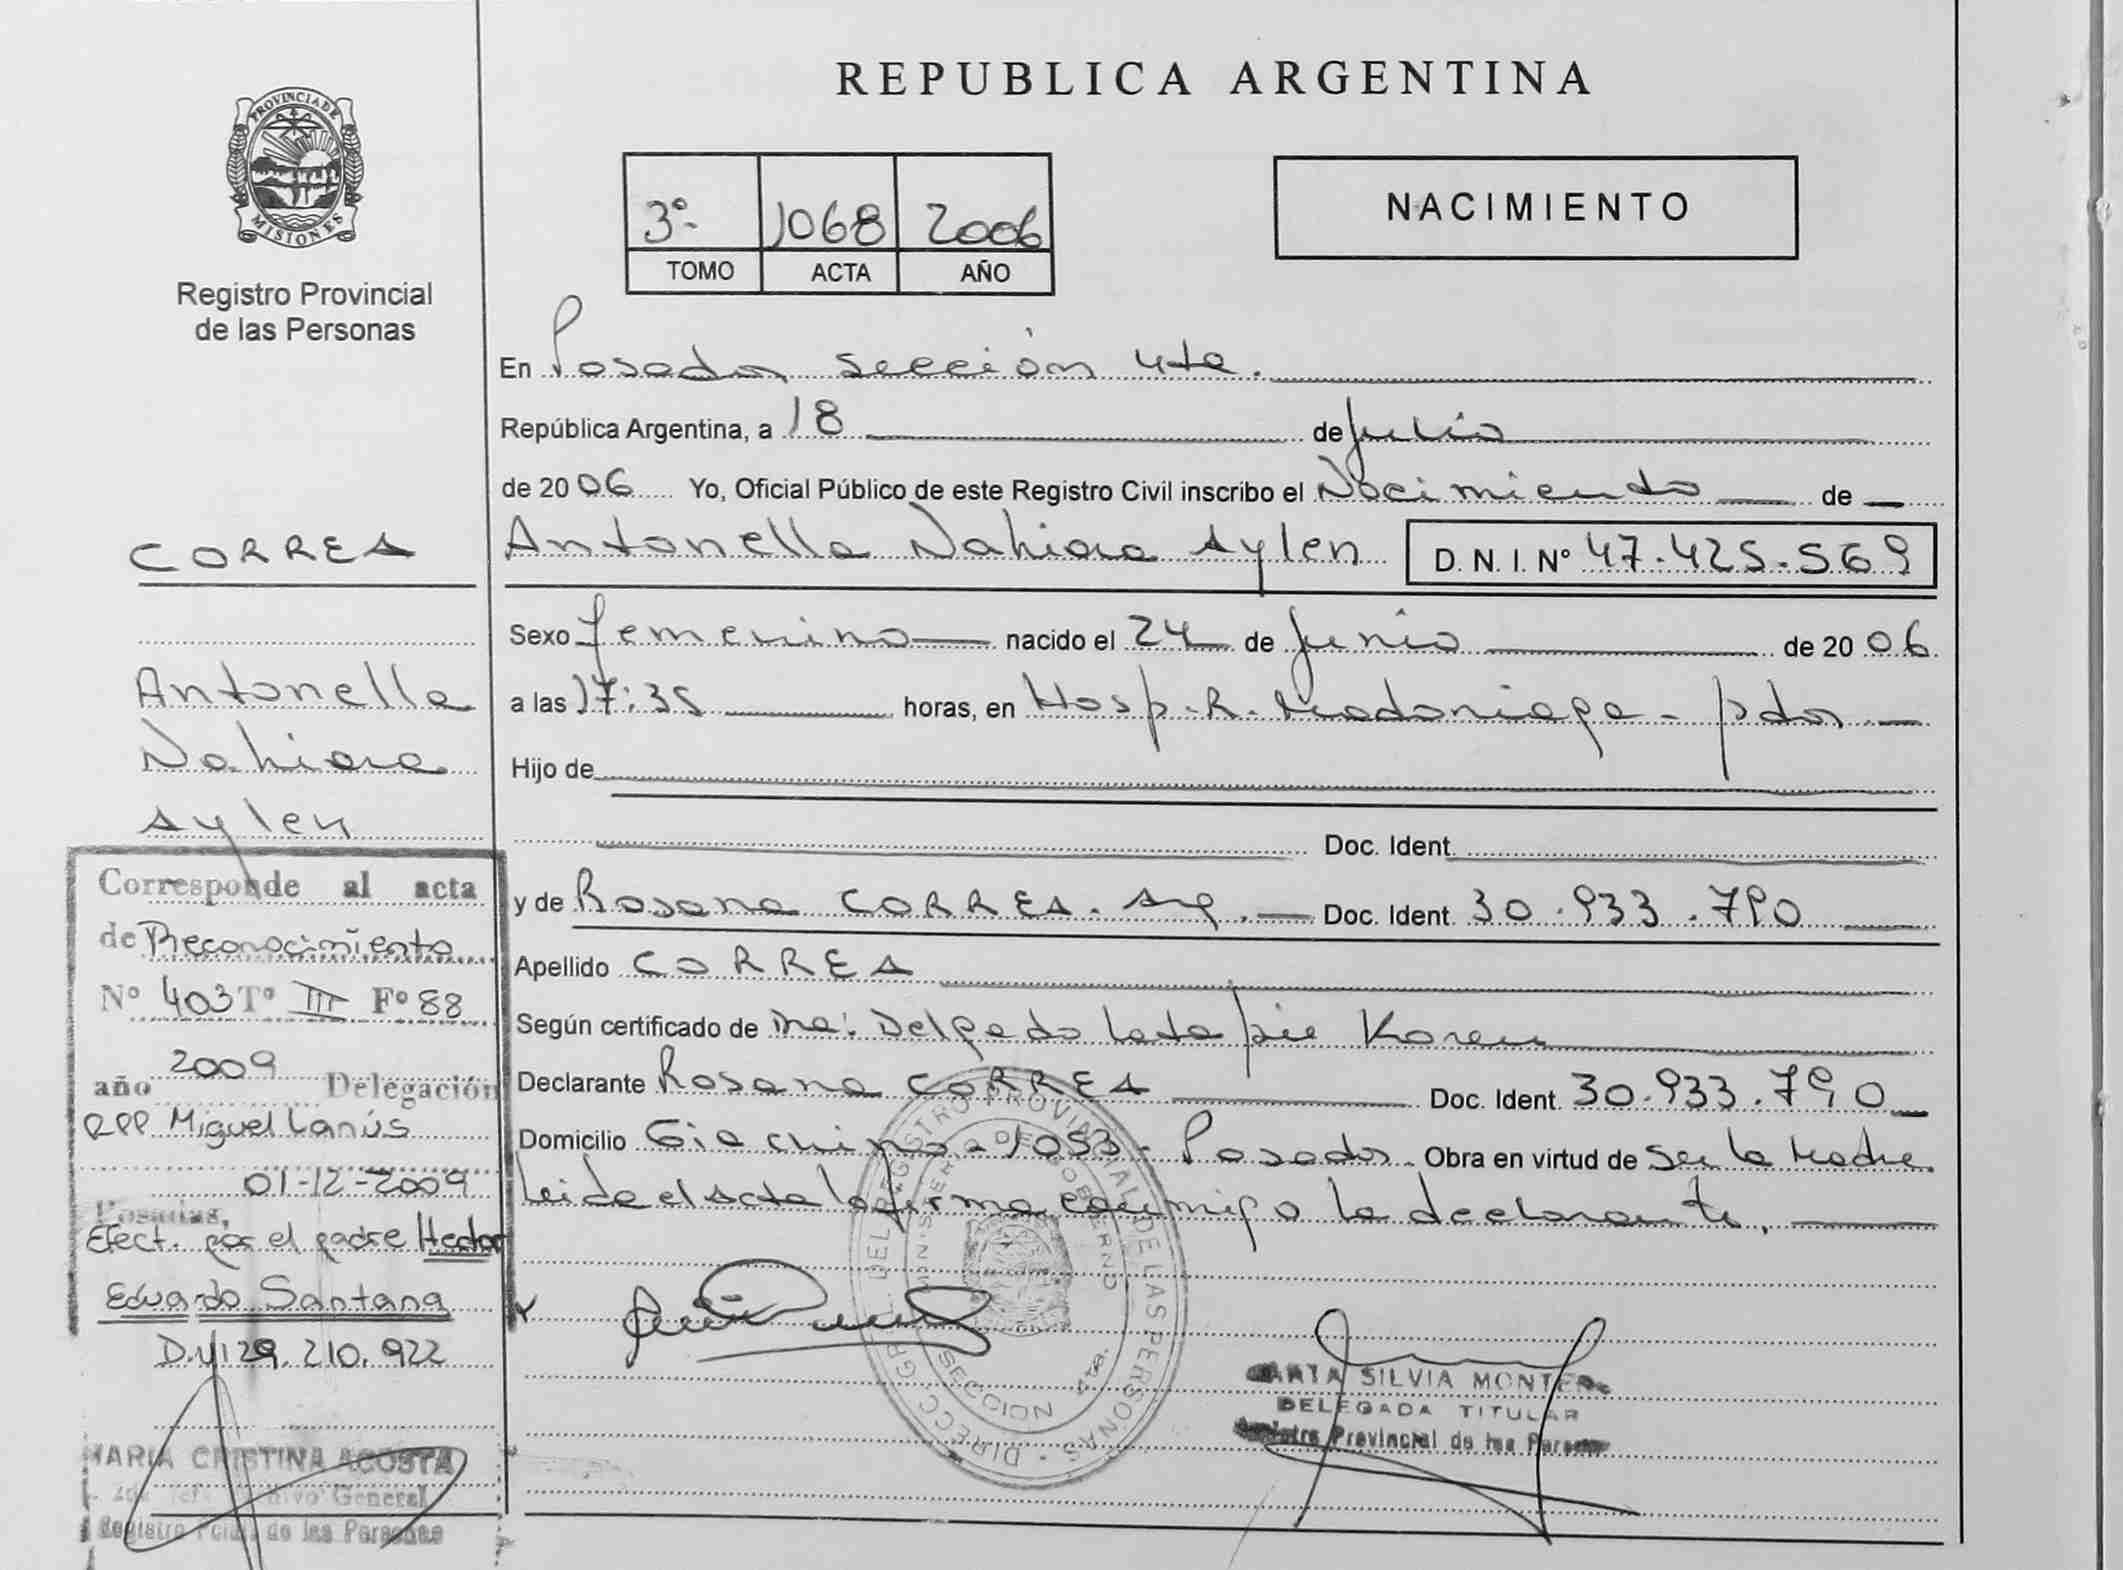 REPUBLICA ARGENTINA
PROVINCIA DE
MISIONES
Registro Provincial
de las Personas
3º 1068 2006
TOMO ACTA AÑO
NACIMIENTO
En Posadas sección 4ta.
República Argentina, a 18 de Julio
de 2006 Yo, Oficial Público de este Registro Civil inscribo el Nacimiento de
Antonella Nahiara Aylen D.N.I. Nº 47.425.569
Sexo femenino nacido el 24 de Junio de 2006
a las 17:35 horas, en Hosp. R. Madariaga - pdas
Hijo de
Doc. Ident.
y de Rosana CORREA. Arg. Doc. Ident. 30.933.790
Apellido CORREA
Según certificado de Delgado Karen
Declarante Rosana CORREA Doc. Ident. 30.933.790
Domicilio Giachino 1053 - Posadas Obra en virtud de ser la Madre
Leida el Acta la firma conmigo la declarante.
DIRECC. GRAL. DEL REGISTRO PROVINCIAL DE LAS PERSONAS
MINISTERIO DE GOBIERNO
SECCION 4ta.
SILVIA
DELEGADA TITULAR
Registro Provincial de las Personas
CORREA
Antonella
Nahiara
Aylen
Corresponde al acta
de Reconocimiento
Nº 403 Tº III Fº 88
año 2009 Delegación
RPP Miguel Lanús
01-12-2009
Posadas,
Efect. por el padre Hector
Eduardo Santana
D.N.I 29.210.922
MARIA CRISTINA ACOSTA
General
Registro Pcial. de las Personas